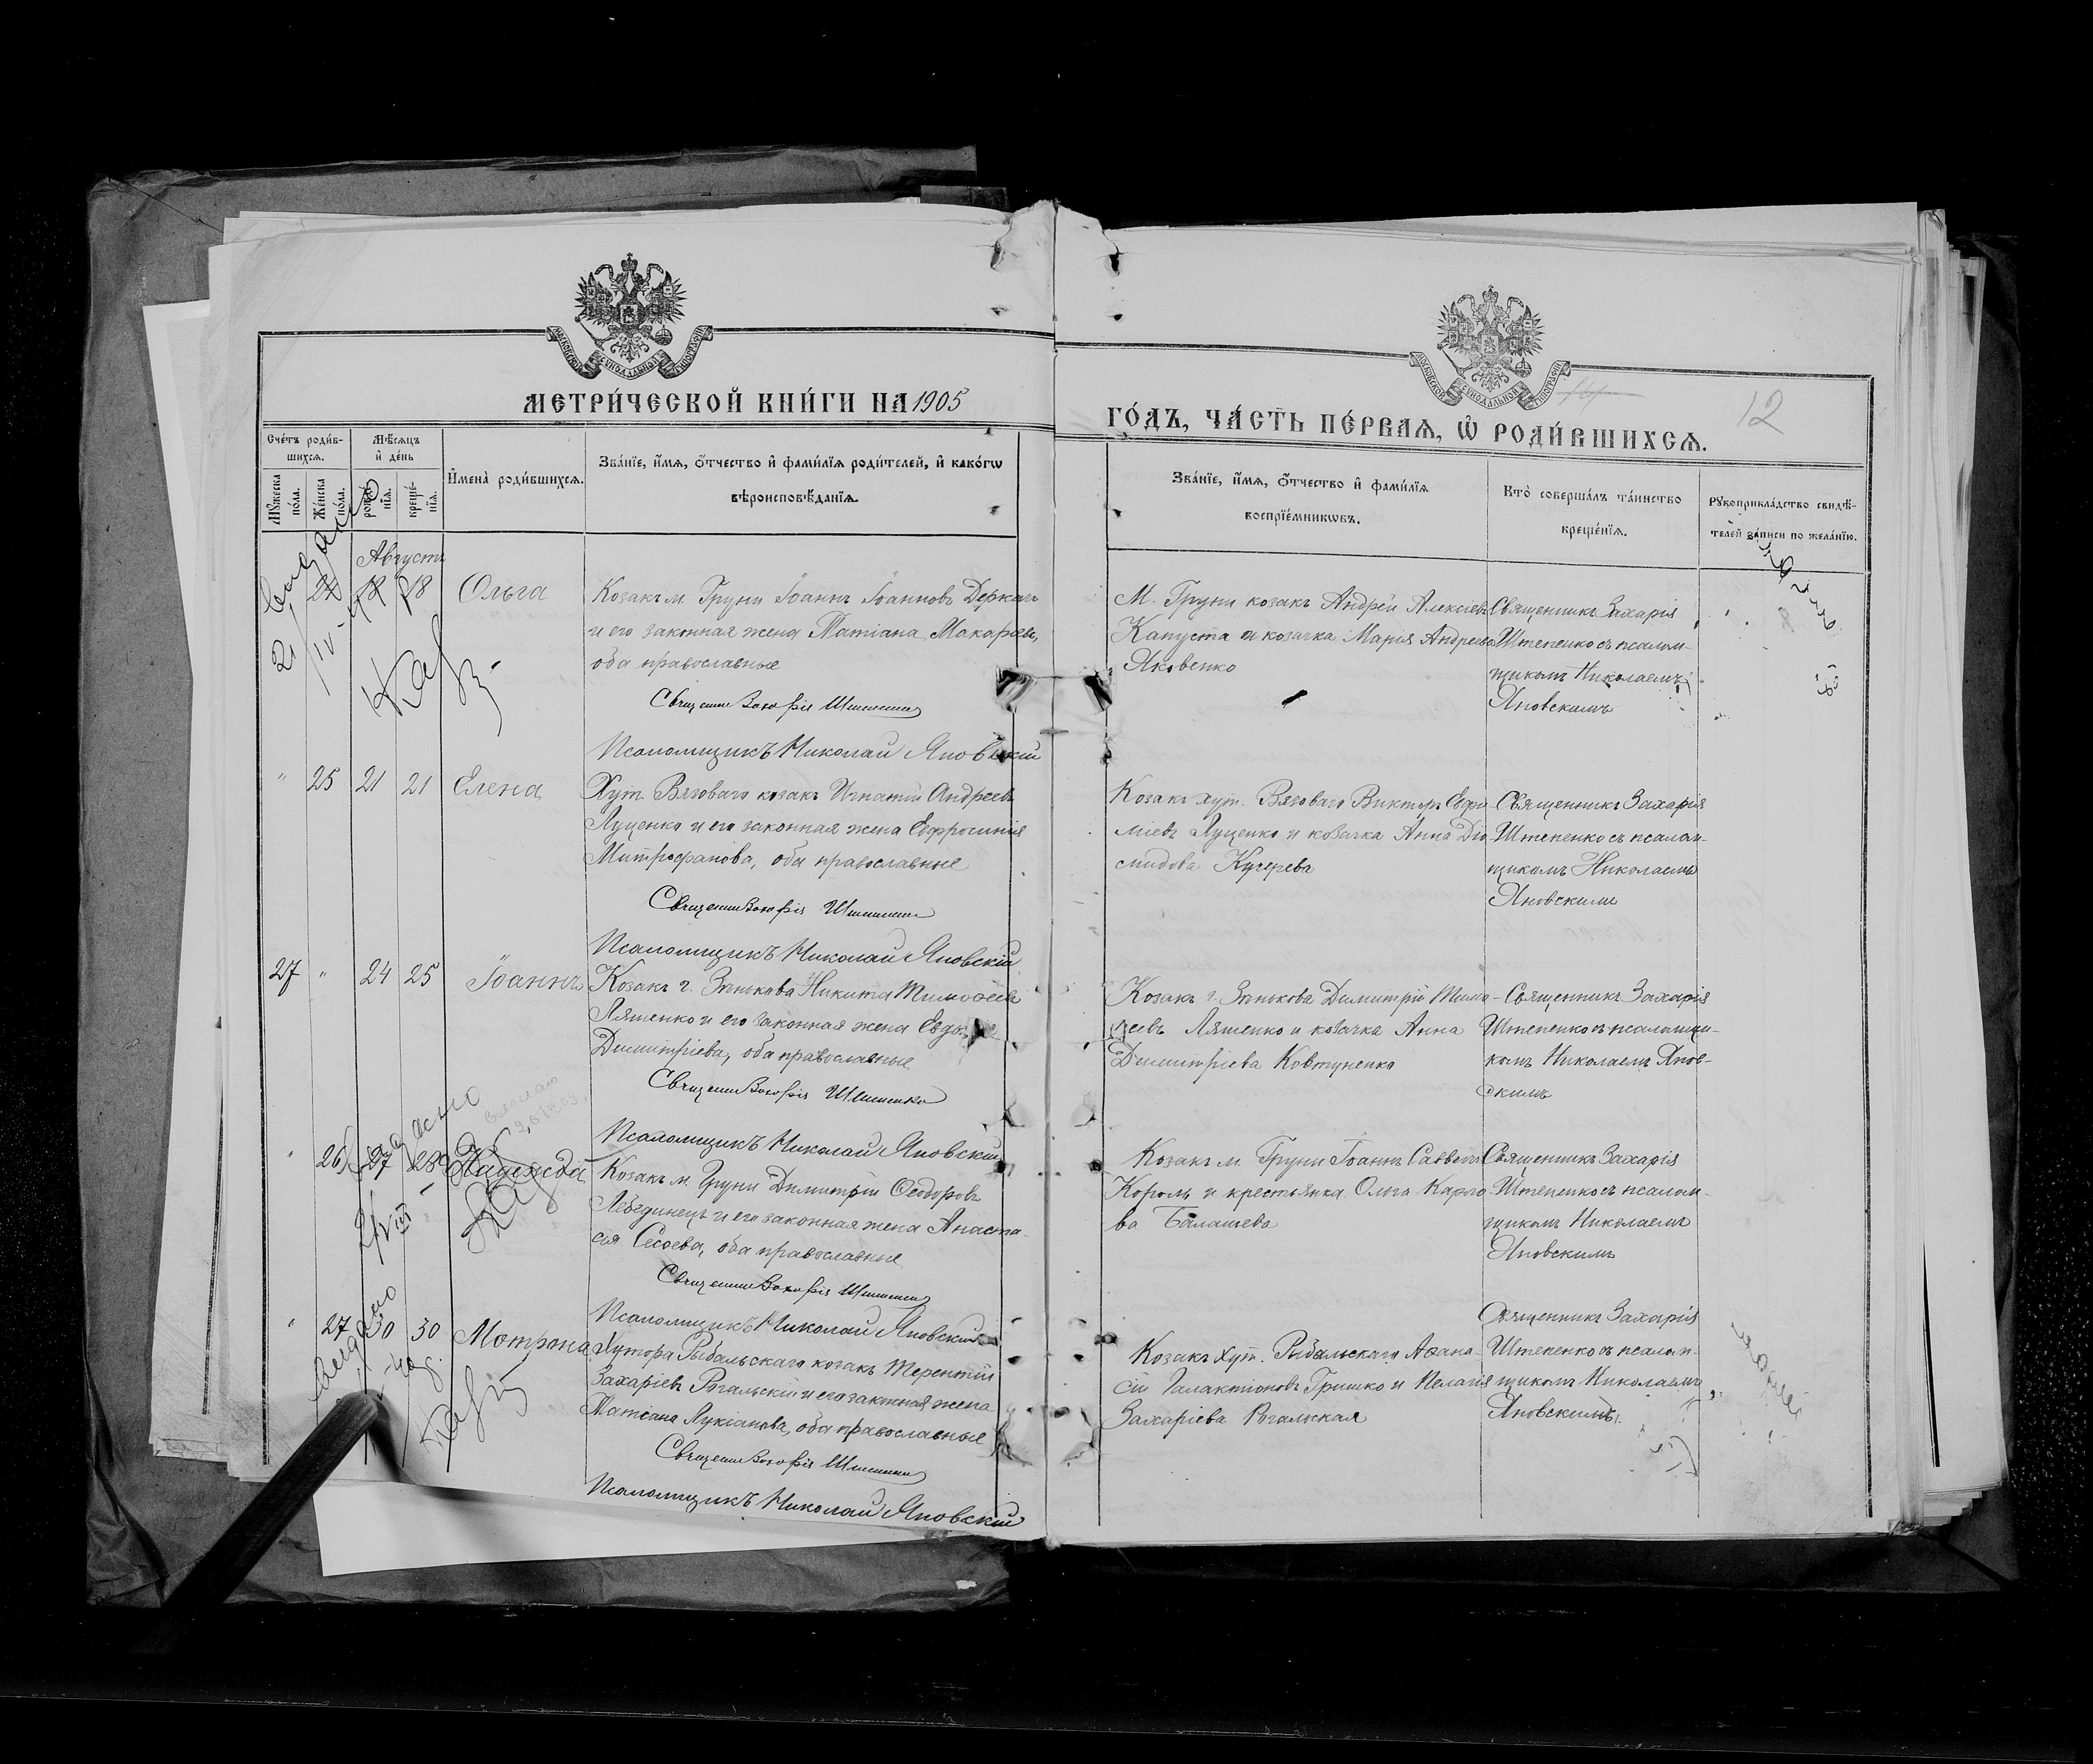 МЕТРИ́ЧЕСКОЙ КНИ́ГИ НА 1905
ГО́ДЪ, ЧА́СТЬ ПЕ́РВАЯ, Ѡ҆ РОДИ́ВШИХСЯ.
12
Сче́тъ роди́в-
шихся.
Мѣ́сяцъ
и҆ де́нь
Му́жеска по́ла.
Же́нска по́ла.
рожде́-
нїя.
креще́-
нїя.
И҆мена̀ роди́вшихся.
Зва́нїе, и҆́мя, ѻ҆́тчество и҆ фами́лїя роди́телей, и҆ како́гѡ
вѣроисповѣ́данїя.
Зва́нїе, и҆́мя, ѻ҆́тчество и҆ фами́лїя
воспрїе́мникѡвъ.
Кто̀ соверша́лъ та́инство
креще́нїя.
Рꙋкоприкла́дство свидѣ́-
телей за́писи по жела́нїю.
Августъ
24 18 18 Ольга
Козакъ м. Груни Іоаннъ Іоанновъ Деркачъ
и его законная жена Татіана Макарова,
оба православные
Священн Захарія Штепенко
Псаломщикъ Николай Яновскій
М. Груни козакъ Андрей Алексіевъ
Капуста и козачка Марія Андреева
Яковенко
Священникъ Захарія
Штепенко съ псалом-
щикомъ Николаемъ
Яновскимъ
" 25 21 21 Елена
Хут. Вязоваго козакъ Игнатій Андреевъ
Луценко и его законная жена Евфросинія
Митрофанова, оба православные
Священн Захарія Штепенко
Псаломщикъ Николай Яновскій
Козакъ хут. Вязоваго Викторъ Евфи-
міевъ Луценко и козачка Анна Діо-
мидова Кучерева
Священникъ Захарія
Штепенко съ псалом-
щикомъ Николаемъ
Яновскимъ
27 " 24 25 Іоаннъ
Козакъ г. Зѣнькова Никита Тимофеевъ
Ляшенко и его законная жена
Димитріева, оба православные
Священн Захарія Штепенко
Псаломщикъ Николай Яновскій
Козакъ г. Зѣнькова Димитрій Тимо-
феевъ Ляшенко и козачка Анна
Димитріева Ковтуненко
Священникъ Захарія
Штепенко съ псаломщи-
комъ Николаемъ Янов-
скимъ
" 26 27 28 Надежда
Козакъ м. Груни Димитрій Ѳеодоровъ
Лебединецъ и его законная жена Анаста-
сія Сысоева, оба православные
Священн Захарія Штепенко
Псаломщикъ Николай Яновскій
Козакъ м. Груни Іоаннъ Саввичъ
Король и крестьянка Ольга Карпо-
ва Балашева
Священникъ Захарія
Штепенко съ псалом-
щикомъ Николаемъ
Яновскимъ
" 27 30 30 Мотрона
Хутора Рыбальскаго козакъ Терентій
Захаріевъ Рогальскій и его законная жена
Татіана Лукіанова, оба православные
Священн Захарія Штепенко
Псаломщикъ Николай Яновскій
Козакъ хут. Рыбальскаго Аѳана-
сій Галактіоновъ Гришко и Пелагія
Захаріева Рогальская
Священникъ Захарія
Штепенко съ псалом-
щикомъ Николаемъ
Яновскимъ.